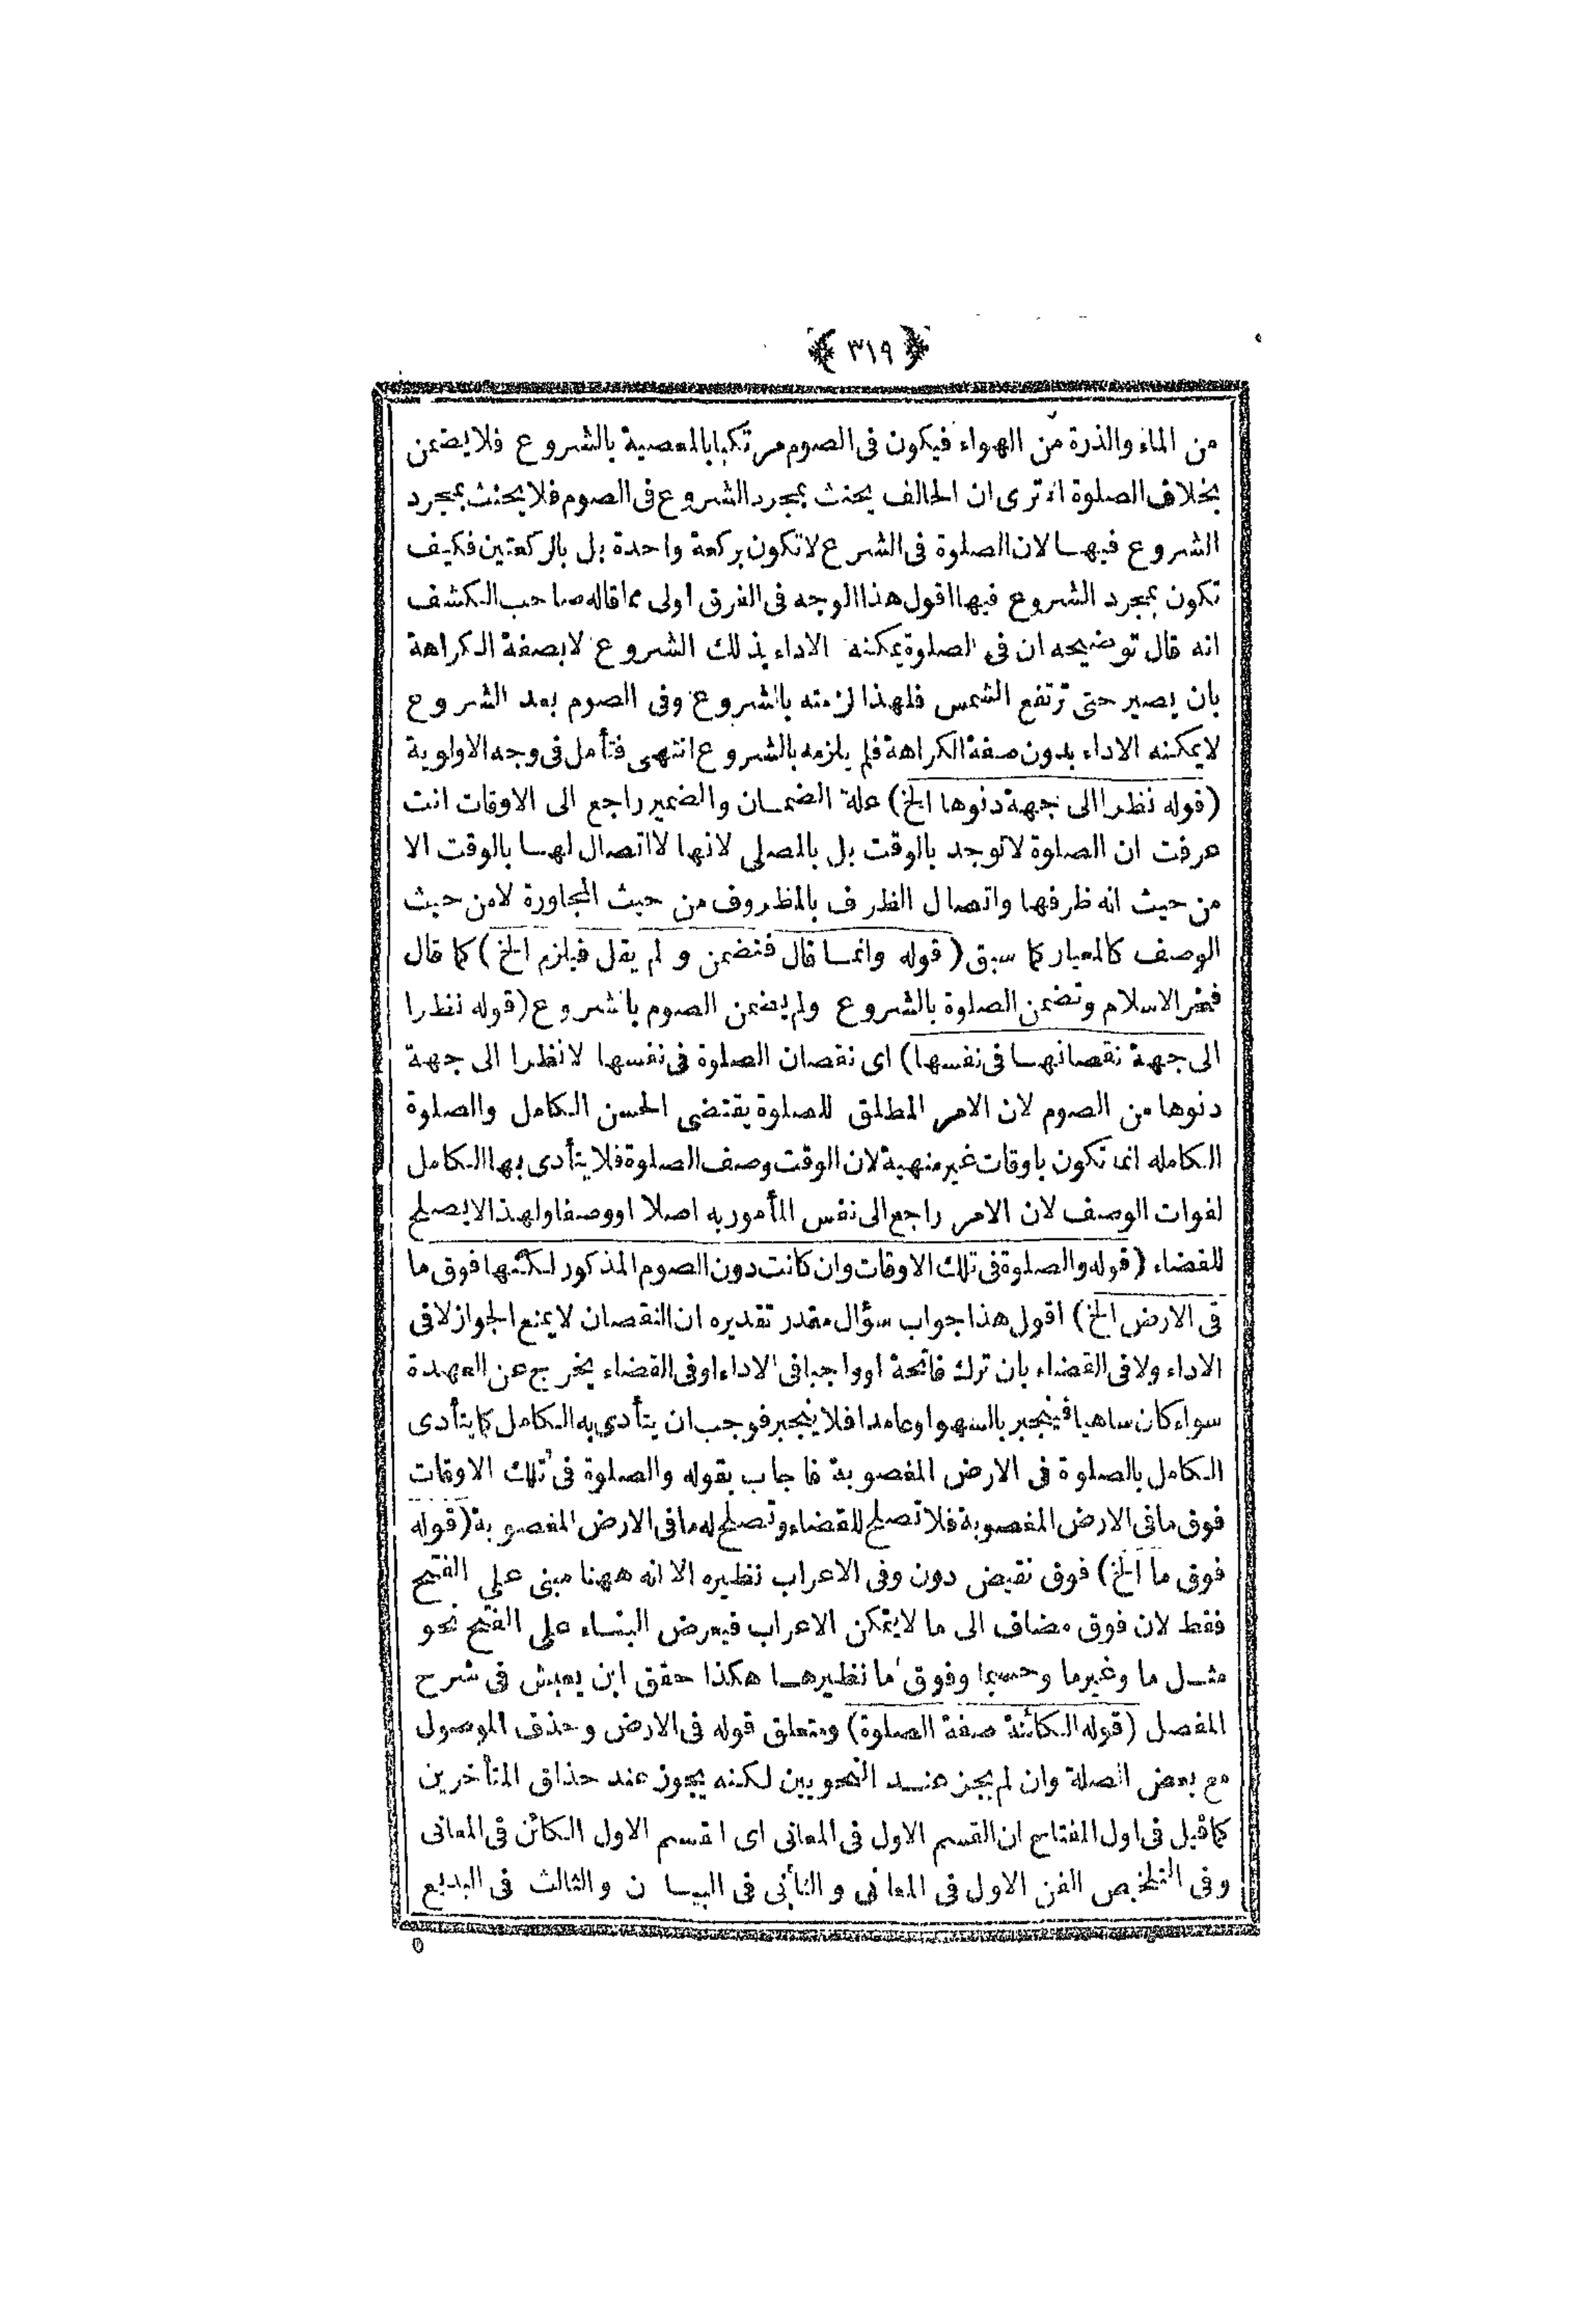 ﴿ ٣١٩ ﴾
من الماء والذرة من الهواء فيكون فى الصوم مرتكبا بالمعصية بالشروع فلا يضمن
بخلاف الصلوة اترى ان الحالف يحنث بمجرد الشروع فى الصوم فلا يحنث بمجرد
الشروع فيها لان الصلوة فى الشرع لا تكون بركعة واحدة بل بالركعتين فكيف
تكون بمجرد الشروع فيها اقول هذا الوجه فى الفرق اولى مما قاله صاحب الكشف
انه قال توضيحه ان فى الصلوة يمكنه الاداء بذلك الشروع لا بصفة الكراهة
بان يصير حتى ترتفع الشمس فلهذا لزمته بالشروع وفى الصوم بعد الشروع
لا يمكنه الاداء بدون صفة الكراهة فلم يلزمه بالشروع انتهى فتأمل فى وجه الاولوية
(قوله نظرا الى جهة دنوها الخ) علة الضمان والضمير راجع الى الاوقات انت
عرفت ان الصلوة لا توجد بالوقت بل بالمصلى لانها لا اتصال لها بالوقت الا
من حيث انه ظرفها واتصال الظرف بالمظروف من حيث المجاورة لا من حيث
الوصف كالمعيار كما سبق (قوله وانما قال فتضمن ولم يقل فيلزم الخ) كما قال
فخر الاسلام وتضمن الصلوة بالشروع ولم يضمن الصوم بالشروع (قوله نظرا
الى جهة نقصانها فى نفسها) اى نقصان الصلوة فى نفسها لا نظرا الى جهة
دنوها من الصوم لان الامر المطلق للصلوة يقتضى الحسن الكامل والصلوة
الكامله انما تكون باوقات غير منهية لان الوقت وصف الصلوة فلا يتأدى بها الكامل
لفوات الوصف لان الامر راجع الى نفس المأمور به اصلا او وصفا ولهذا لا يصلح
للقضاء (قوله والصلوة فى تلك الاوقات وان كانت دون الصوم المذكور لكنها فوق ما
فى الارض الخ) اقول هذا جواب سؤال مقدر تقديره ان النقصان لا يمنع الجواز لا فى
الاداء ولا فى القضاء بان ترك فاتحة او واجبا فى الاداء او فى القضاء يخرج عن العهدة
سواء كان ساهيا فينجبر بالسهو او عامدا فلا ينجبر فوجب ان يتأدى به الكامل كما يتأدى
الكامل بالصلوة فى الارض المغصوبة فاجاب بقوله والصلوة فى تلك الاوقات
فوق ما فى الارض المغصوبة فلا تصلح للقضاء وتصلح له ما فى الارض المغصوبة (قوله
فوق ما الخ) فوق نقيض دون وفى الاعراب نظيره الا انه ههنا مبنى على الفتح
فقط لان فوق مضاف الى ما لا يتمكن الاعراب فيعرض البناء على الفتح نحو
مثل ما وغير ما وحسبما وفوق ما نظيرها هكذا حقق ابن يعيش فى شرح
المفصل (قوله الكائنة صفة الصلوة) ومتعلق قوله فى الارض وحذف الموصول
مع بعض الصلة وان لم يجز عند النحويين لكنه يجوز عند حذاق المتأخرين
كما قيل فى اول المفتاح ان القسم الاول فى المعانى اى القسم الاول الكائن فى المعانى
وفى التلخيص الفن الاول فى المعانى والثانى فى البيان والثالث فى البديع